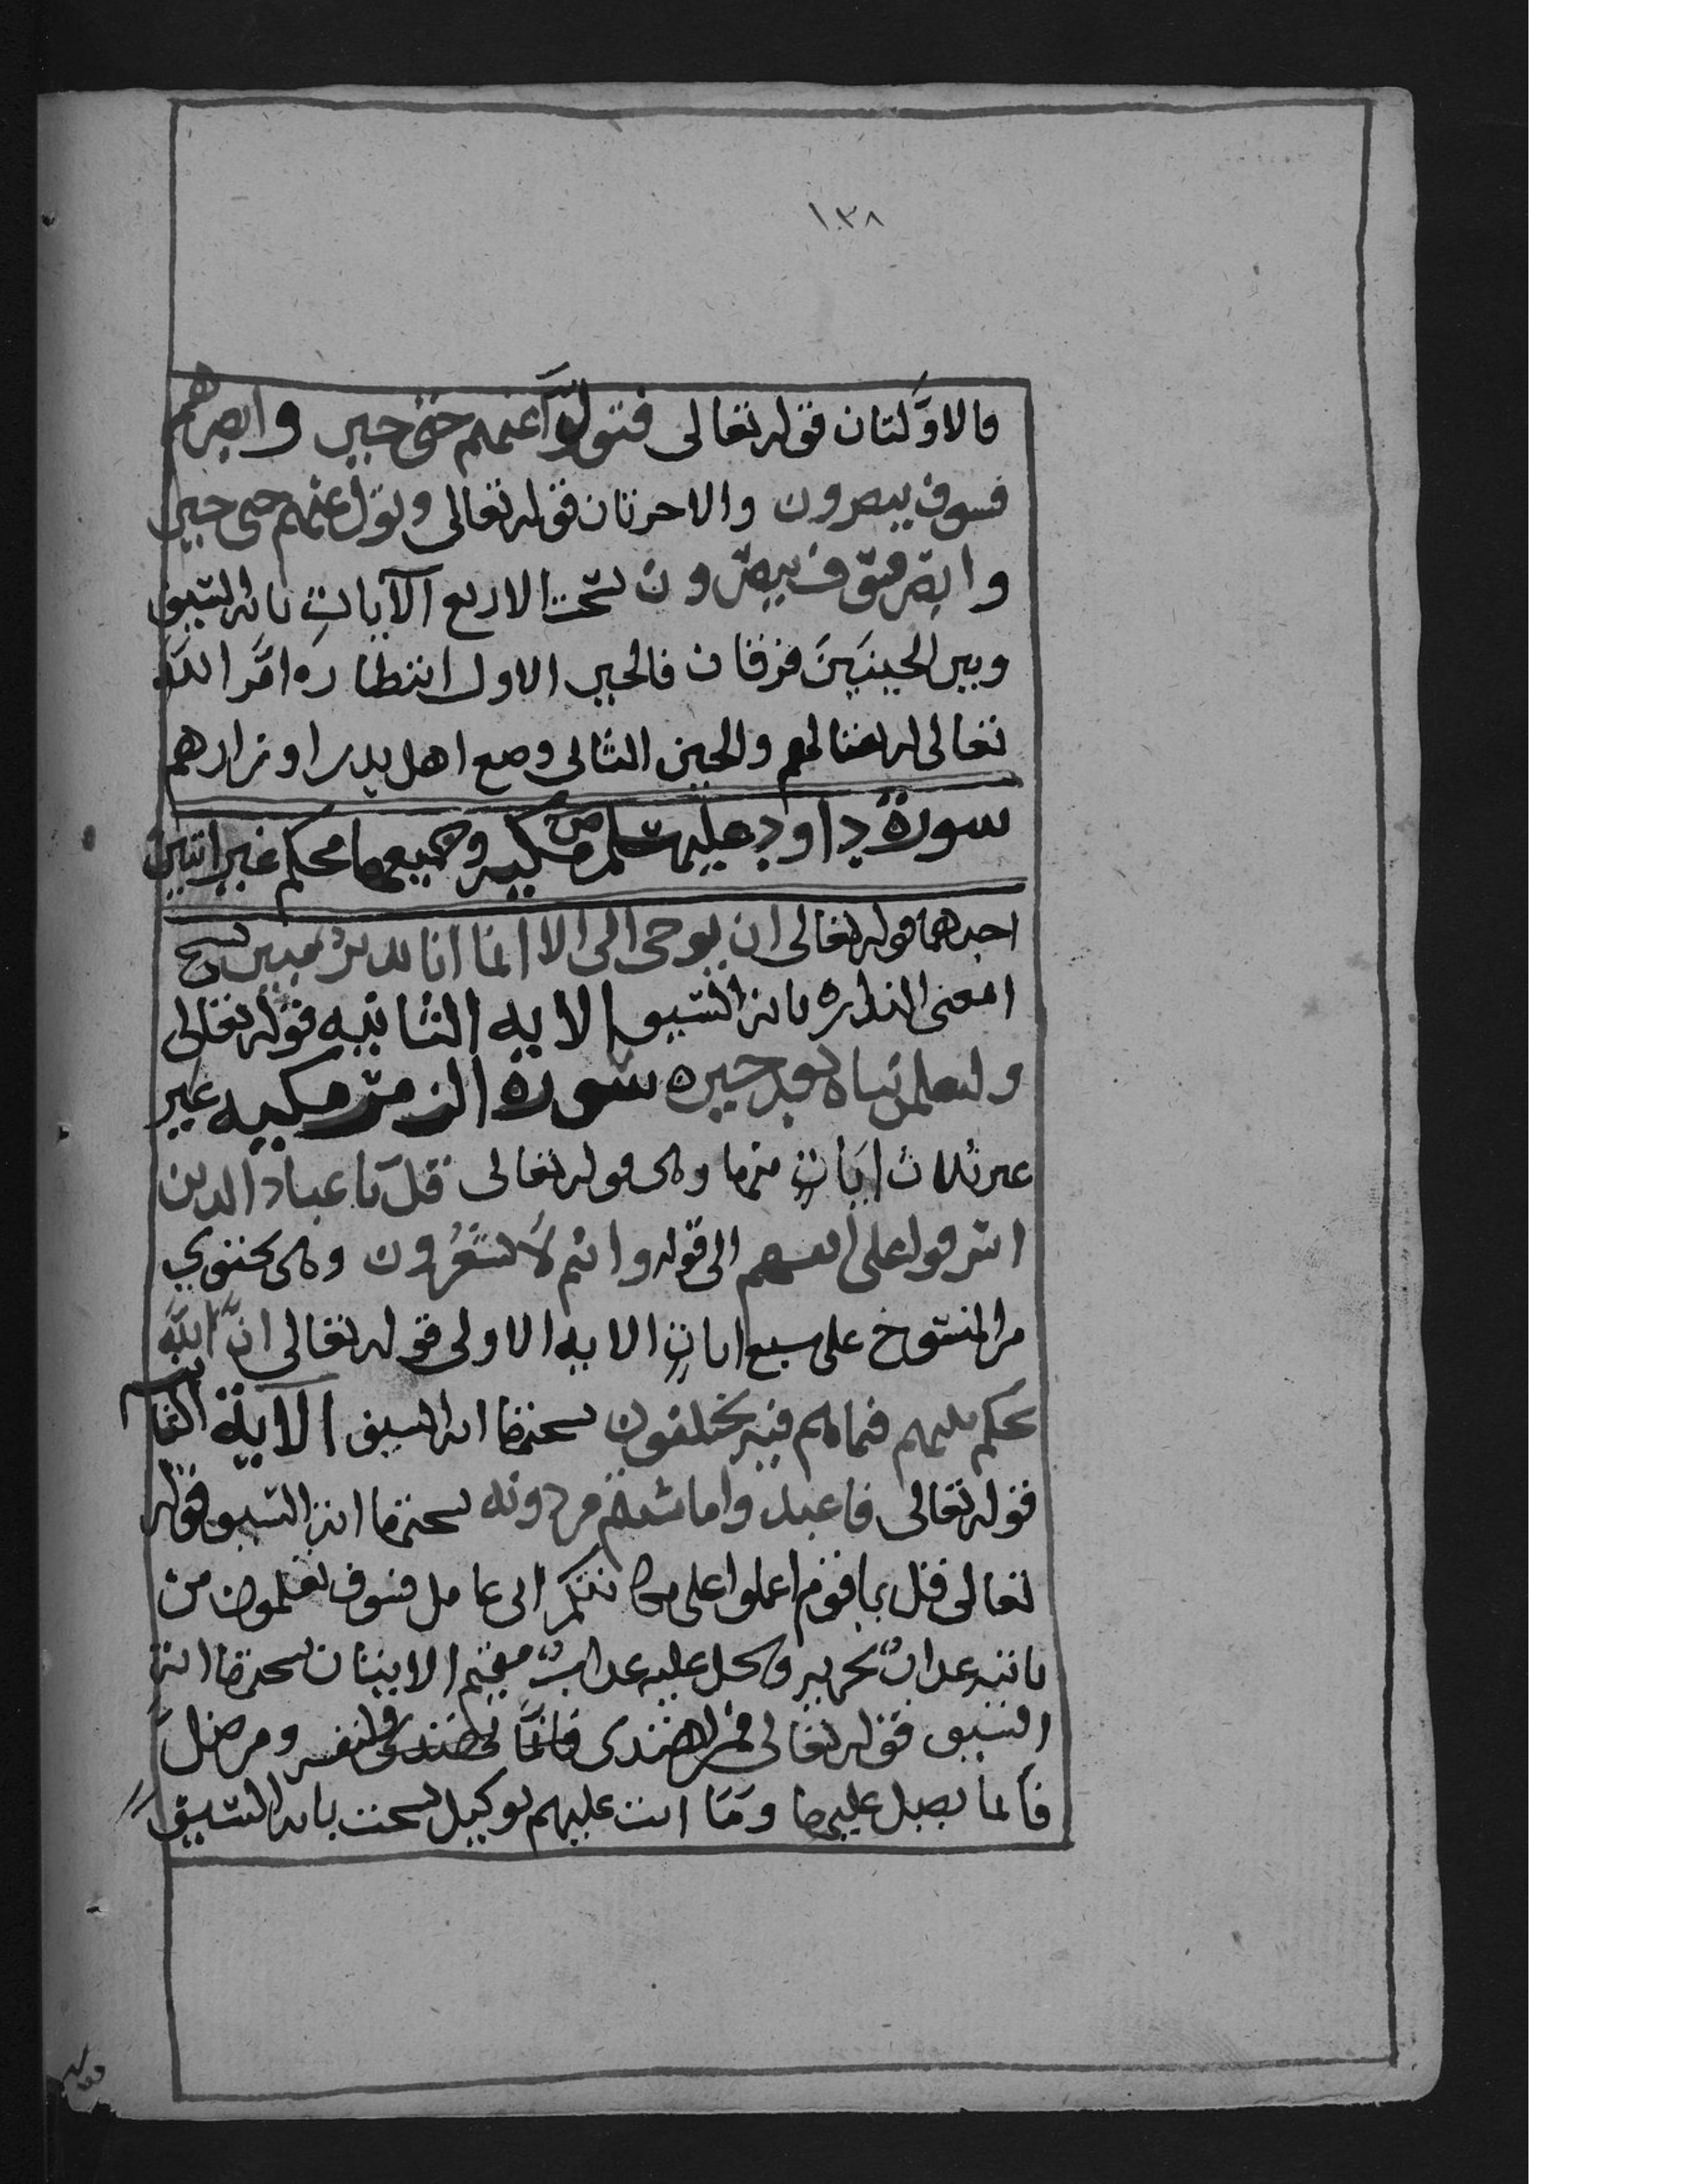 ١٣٨
فالاوَّلتان قوله تعالى فتول عنهم حتى حين وابصرهم
فسوف يبصرون والاخرتان قوله تعالى وتول عنهم حتى حين
وابصر فسوف يبصرون نسخت الاربع الآيات باية السيف
وبين الحينين فرقان فالحين الاول انتظاره امر الله
تعالى له بقتالهم والحين الثاني وضع اهل بدر اوزارهم
سورة داود عليه سلم ص مكيه وجميعها محكم غير اتين
احدهما قوله تعالى ان يوحى الى الا انما انا نذير مبين نسخ
امعنى النذاره باية السيف الايه الثانيه قوله تعالى
ولتعلمن نباه بعد حينه سورة الزمر مكيه غير
غير ثلاث ايات منها وهى قوله تعالى قل يا عباد الذين
اسرفوا على انفسهم الى قوله وانتم لا تشعرون وهى تحتوي
من المنسوخ على سبع ايات الايه الاولى قوله تعالى ان الله
يحكم بينهم فيما هم فيه يختلفون نسختها ايه السيف الآية الثانية
قوله تعالى فاعبدوا ما شئتم من دونه نسختها اية السيف قوله
تعالى قل يا قوم اعملوا على مكانتكم انى عامل فسوف تعلمون من
ياتيه عذاب يخزيه ويحل عليه عذاب مقيم الايتان نسختها اية
السيف قوله تعالى فمن اهتدى فانما يهتدى لنفسه ومن ضل
فانما يضل عليها وما انت عليهم بوكيل نسخت باية السيف
قوله